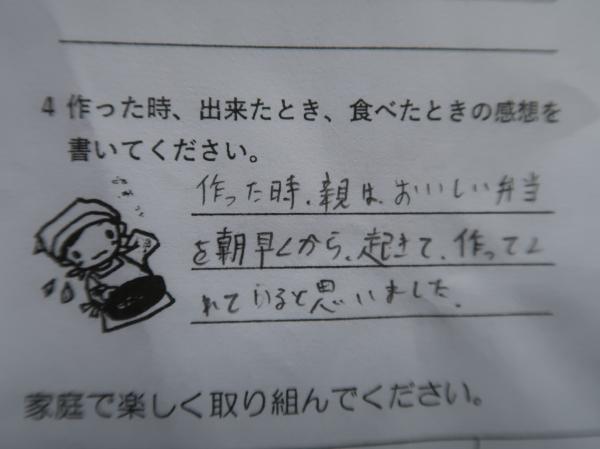 4 作った時、出来たとき、食べたときの感想を
書いてください。
作った時、親は、おいしい弁当
を朝早くから、起きて、作ってく
れていると思いました。
家庭で楽しく取り組んでください。